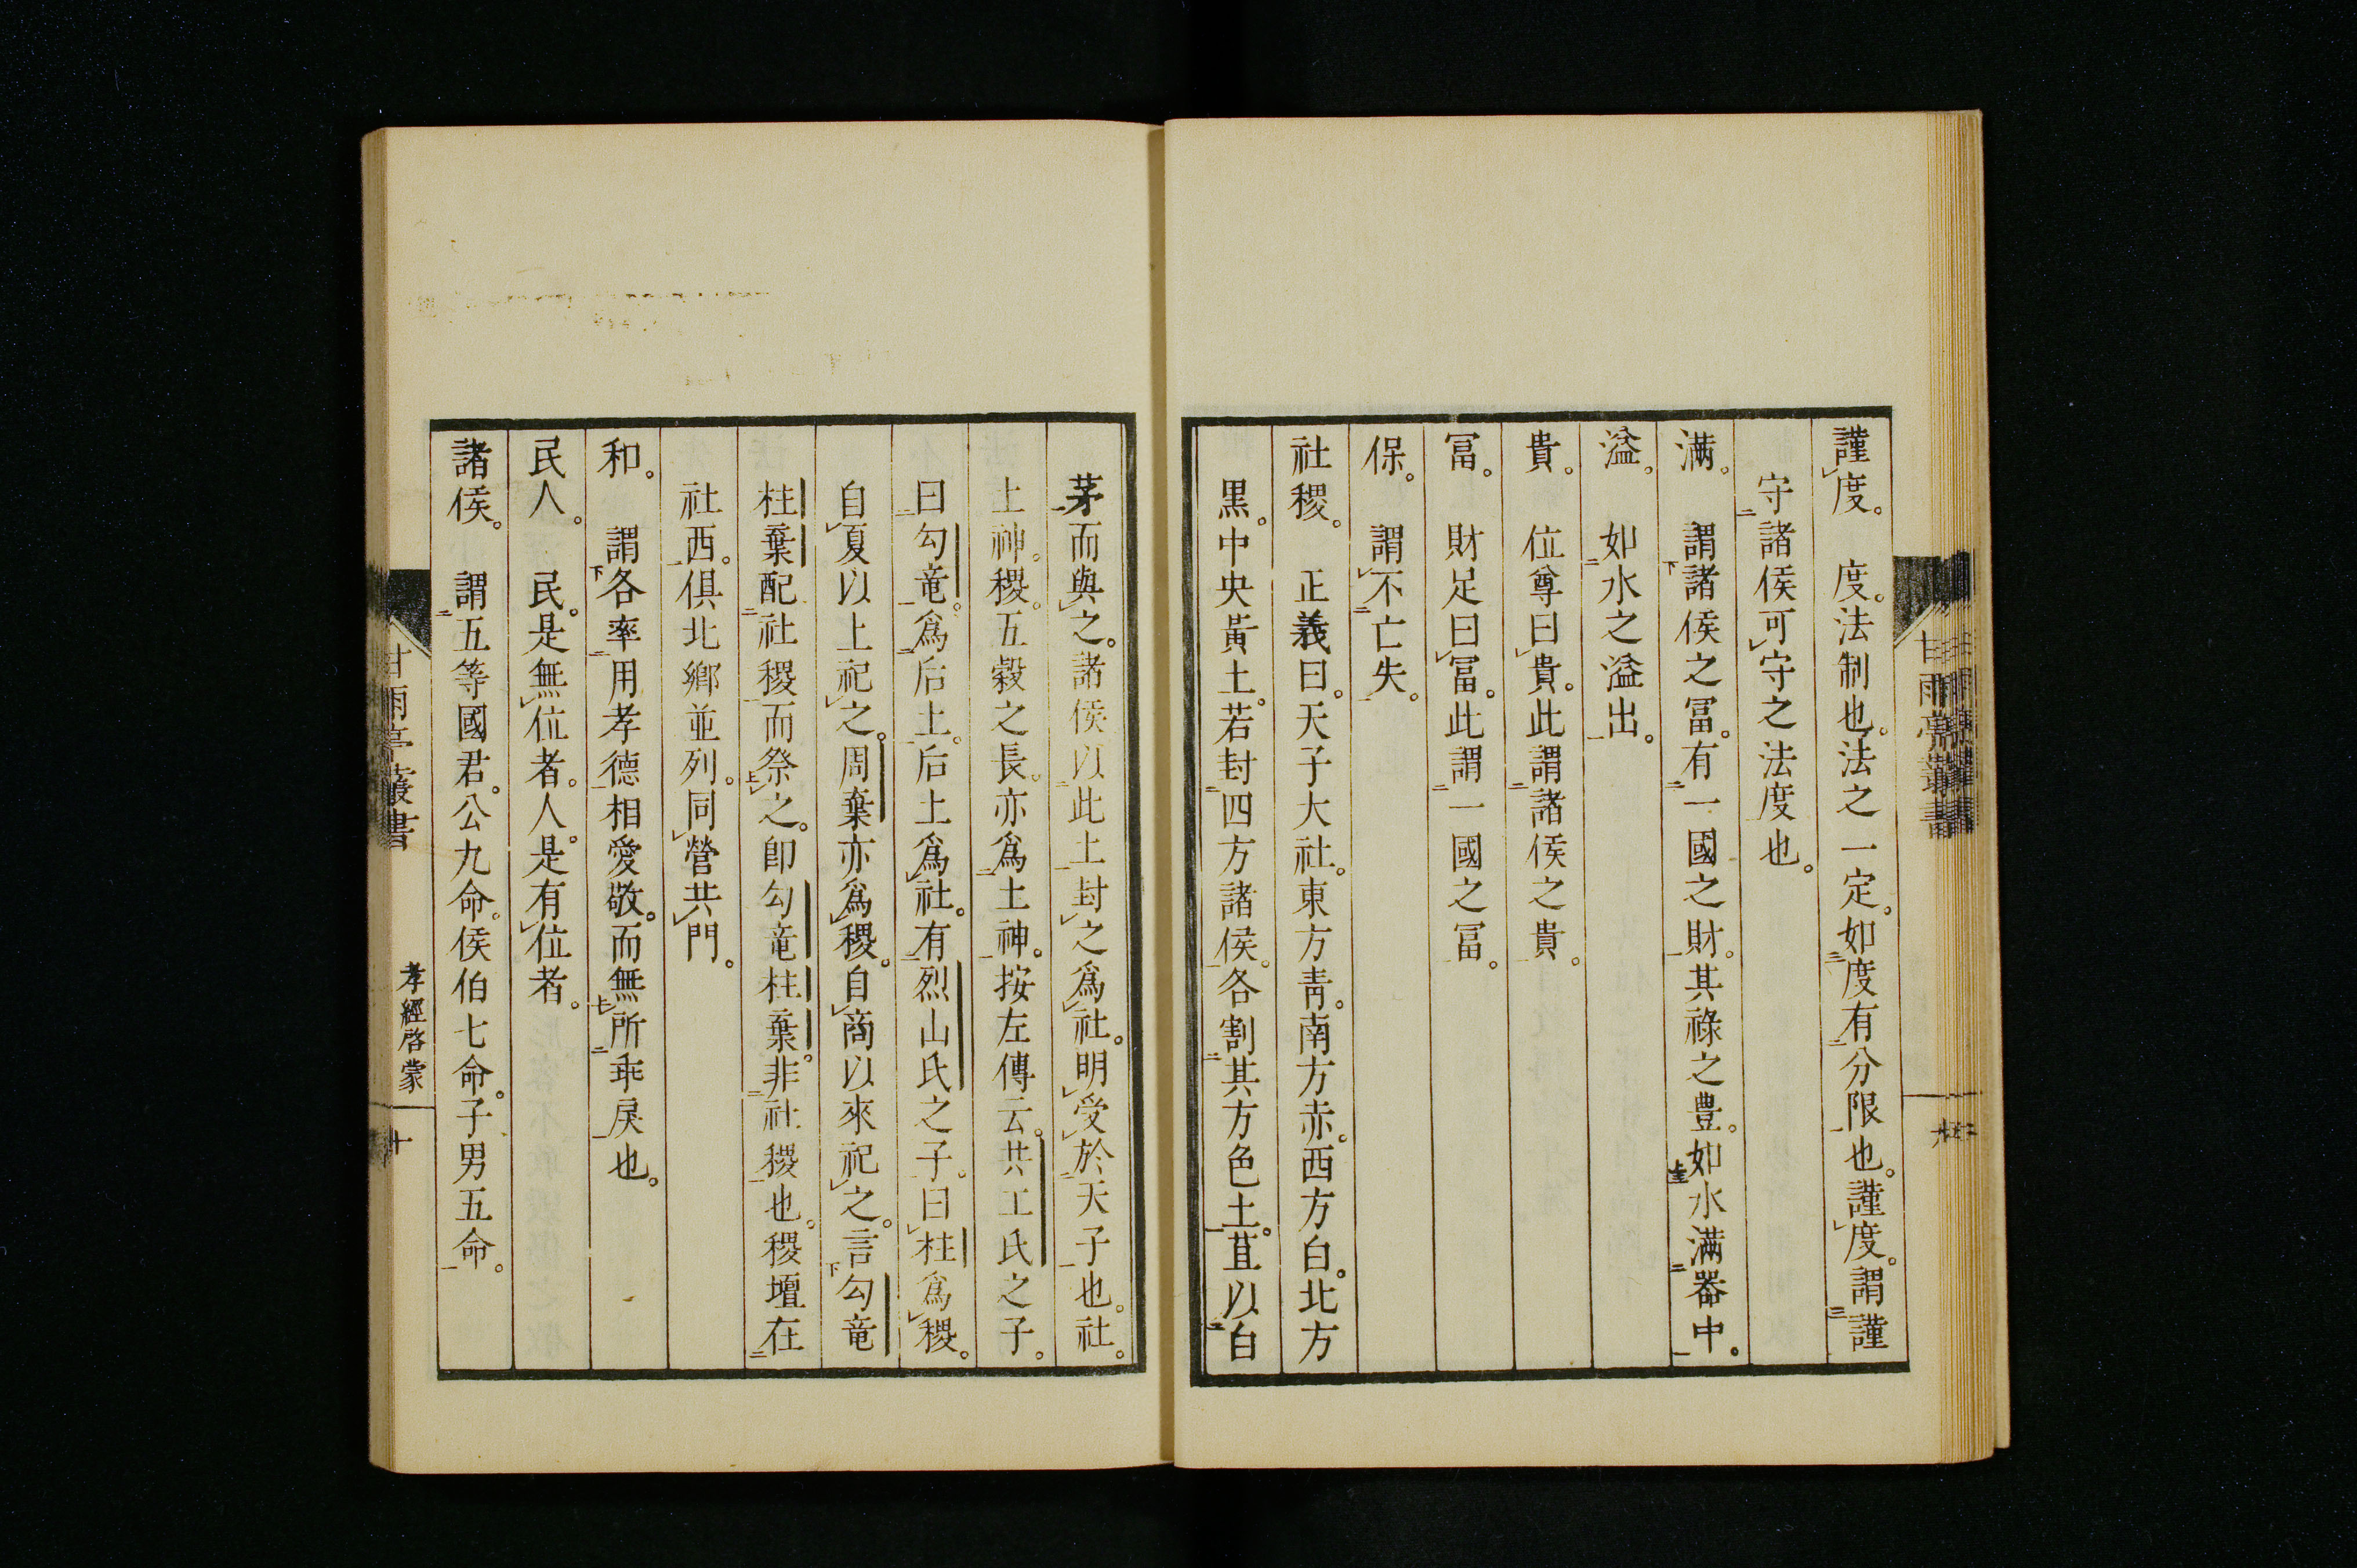 謹度。　度。法制也。法之一定。如度有分限也。謹度。謂謹
守諸侯可守之法度也。
滿。　謂諸侯之冨。有一國之財。其祿之豊。如水滿器中。
溢。　如水之溢出。
貴。　位尊曰貴。此謂諸侯之貴。
冨。　財足曰冨。此謂一國之冨。
保。　謂不亡失。
社稷。　正義曰。天子大社。東方青。南方赤。西方白。北方
黒。中央黃土。若封四方諸侯。各割其方色土。苴以白
茅而與之。諸侯以此土封之爲社。明受於天子也。社。
土神。稷。五穀之長。亦爲土神。按左傳云。共工氏之子。
曰勾竜。爲后土。后土爲社。有烈山氏之子。曰柱爲稷。
自夏以上祀之。周棄亦爲稷。自商以來祀之。言勾竜
柱棄配社稷而祭之。卽勾竜柱棄。非社稷也。稷壇在
社西。俱北鄉並列。同營共門。
和。　謂各率用孝德相愛敬。而無所乖戾也。
民人。　民。是無位者。人。是有位者。
諸侯。　謂五等國君。公九命。侯伯七命。子男五命。
甘雨亭叢書
孝經啓蒙
十